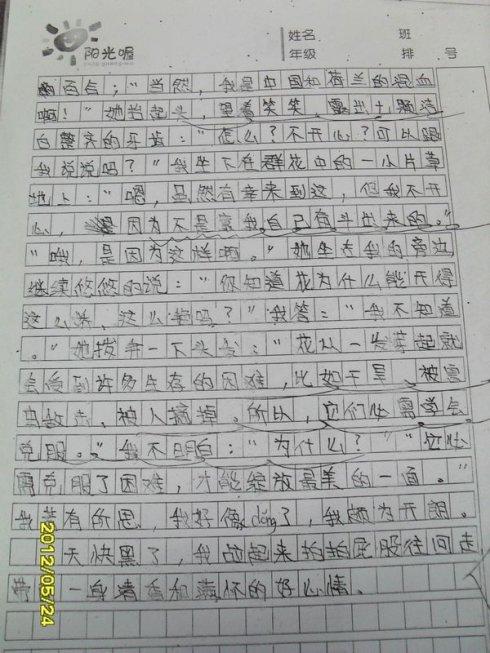 阳光喔
姓名 班
年级 排 号
百点；"当然，我是中国和荷兰的混血
啊！"她抬起头，望着笑笑，露出十颗洁
白整齐的牙齿："怎么？不开心？可以跟
我说说吗？"我坐下在群花中的一小片草
地上："嗯，虽然有幸来到这，但我不开
心，是因为不是靠我自己奋斗出来的。"
"哦，是因为这样啊。"她坐在我的旁边
继续悠悠的说："你知道花为什么能开得
这么，这么吗？"我答："我不知道
。"她拨弄一下头发："花从一发芽起就
会受到许多生存的困难，比如干旱、被害
虫敌击、被人摘掉。所以，它们必需学会
克服。"我不明白："为什么？""它必
需克服了困难，才能绽放最美的一面。"
我若有所思，我好像dǒng了，我颇为开朗。
天快黑了，我站起来拍拍屁股往回走
带一身清香和满怀的好心情。
2012/05/24